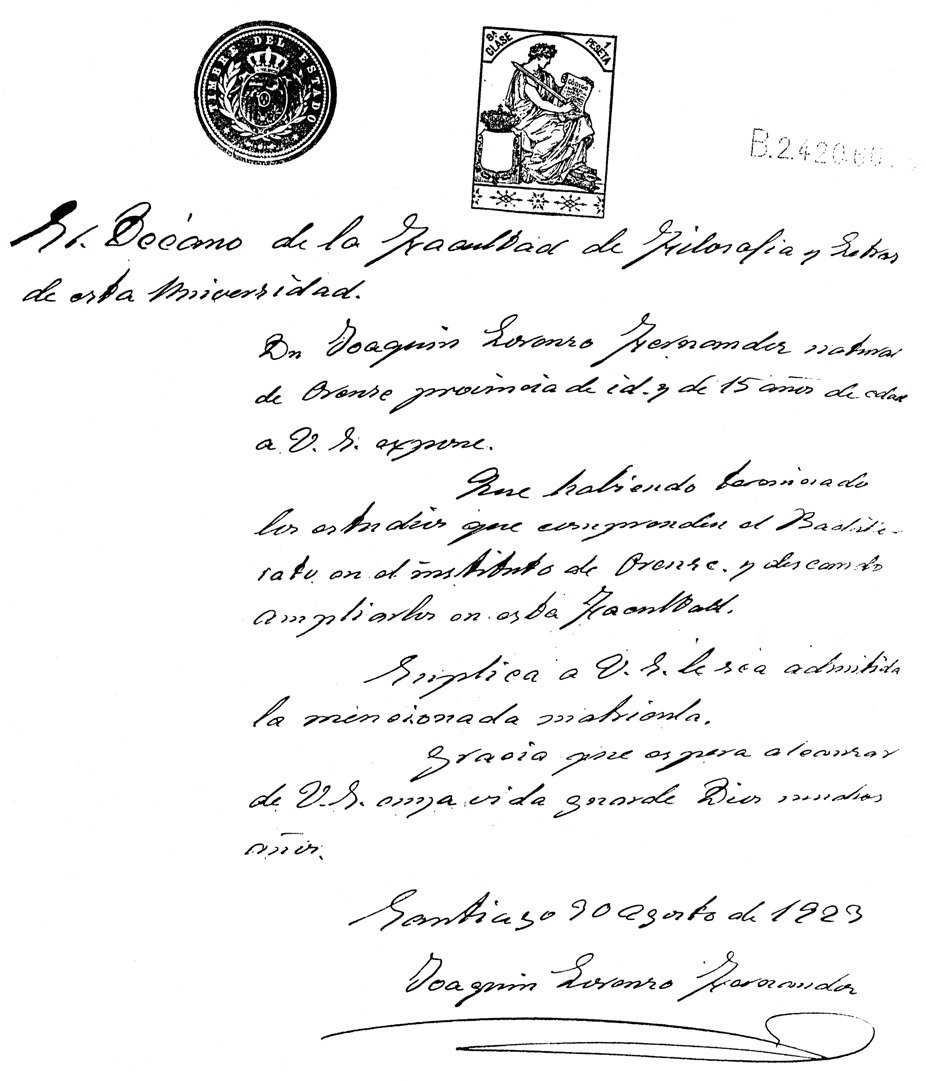 TIMBRE DEL ESTADO
8ª CLASE
1 PESETA
CÓDIGO
B.2.420.60
Sr. Decano de la Facultad de Filosofia y Letras
de esta Universidad.
Dn Joaquin Lorenzo Fernandez natural
de Orense provincia de id. y de 15 años de edad
a V. S. expone.
Que habiendo terminado
los estudios que comprenden el Bachille-
rato en el instituto de Orense. y deseando
ampliarlos en esta Facultad.
Suplica a V. S. le sea admitida
la mencionada matricula.
Gracia que espera alcanzar
de V. S. cuya vida guarde Dios muchos
años.
Santiago 30 agosto de 1923
Joaquin Lorenzo Fernandez